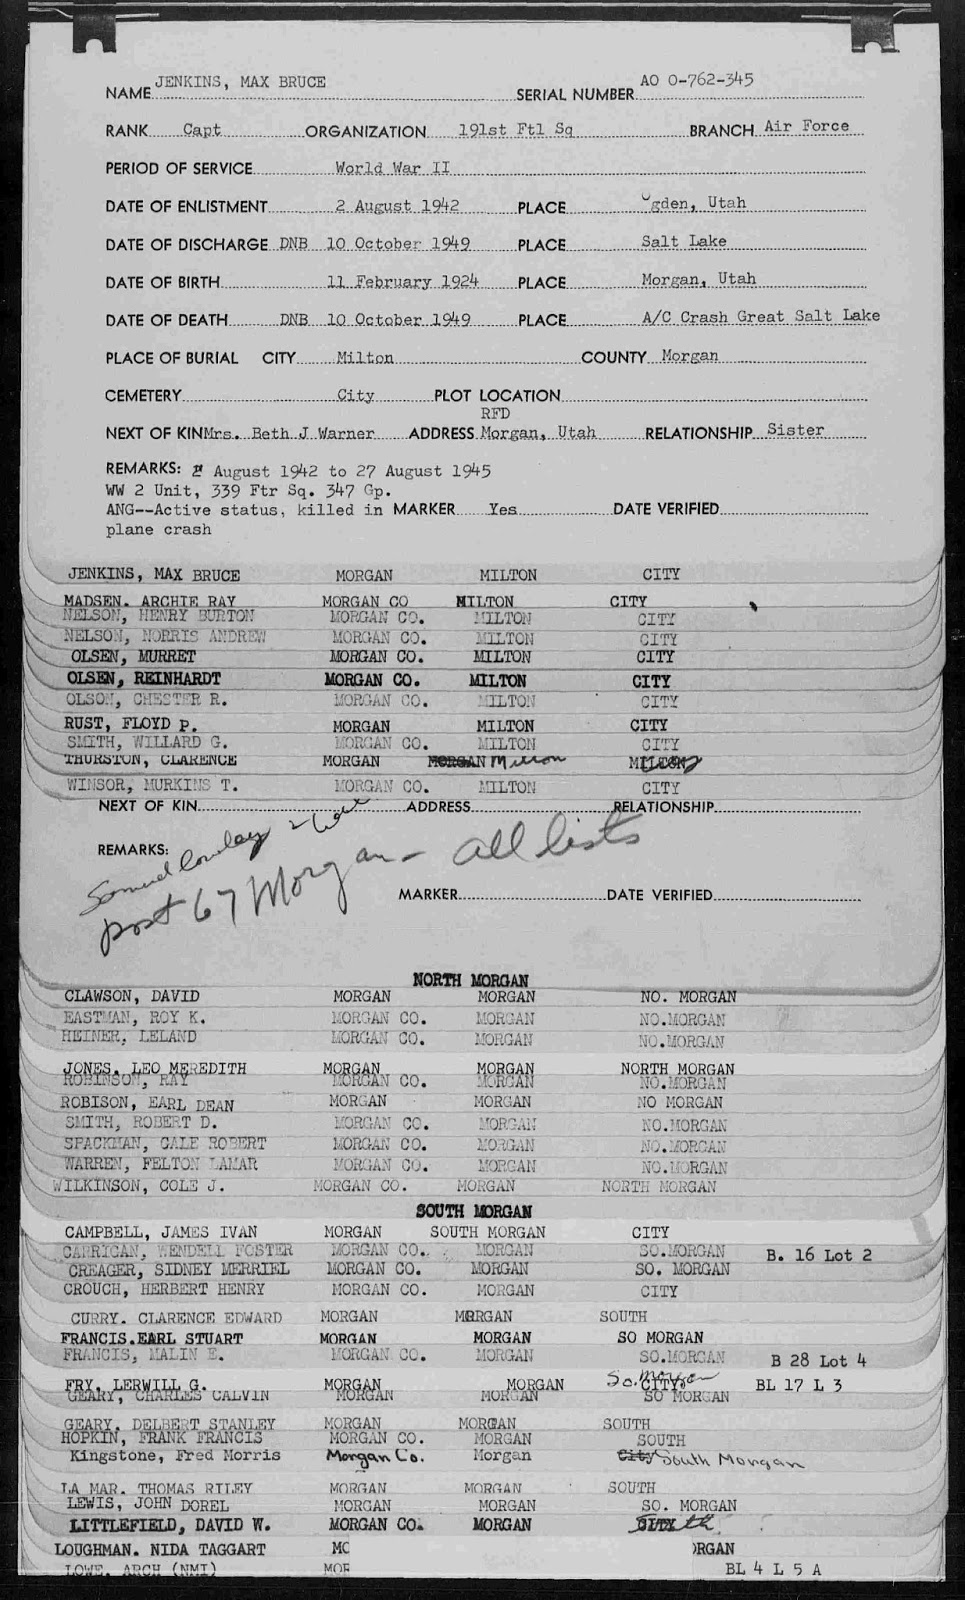 NAME JENKINS, MAX BRUCE SERIAL NUMBER AO 0-762-345
RANK Capt ORGANIZATION 191st Ftl Sq BRANCH Air Force
PERIOD OF SERVICE World War II
DATE OF ENLISTMENT 2 August 1942 PLACE Ogden, Utah
DATE OF DISCHARGE DNB 10 October 1949 PLACE Salt Lake
DATE OF BIRTH 11 February 1924 PLACE Morgan, Utah
DATE OF DEATH DNB 10 October 1949 PLACE A/C Crash Great Salt Lake
PLACE OF BURIAL CITY Milton COUNTY Morgan
CEMETERY City PLOT LOCATION
RFD
NEXT OF KIN Mrs. Beth J Warner ADDRESS Morgan, Utah RELATIONSHIP Sister
REMARKS: 2 August 1942 to 27 August 1945
WW 2 Unit, 339 Ftr Sq. 347 Gp.
ANG--Active status, killed in MARKER Yes DATE VERIFIED
plane crash
JENKINS, MAX BRUCE MORGAN MILTON CITY
MADSEN. ARCHIE RAY MORGAN CO MILTON CITY
NELSON, HENRY BURTON MORGAN CO. MILTON CITY
NELSON, NORRIS ANDREW MORGAN CO. MILTON CITY
OLSEN, MURRET MORGAN CO. MILTON CITY
OLSEN, REINHARDT MORGAN CO. MILTON CITY
OLSON, CHESTER R. MORGAN CO. MILTON CITY
RUST, FLOYD P. MORGAN MILTON CITY
SMITH, WILLARD G. MORGAN CO. MILTON CITY
THURSTON, CLARENCE MORGAN MORGAN Milton MILTON
WINSOR, MURKINS T. MORGAN CO. MILTON CITY
NEXT OF KIN ADDRESS RELATIONSHIP
REMARKS: Samuel
post 67 Morgan - all lists
MARKER DATE VERIFIED
NORTH MORGAN
CLAWSON, DAVID MORGAN MORGAN NO. MORGAN
EASTMAN, ROY K. MORGAN CO. MORGAN NO.MORGAN
HEINER, LELAND MORGAN CO. MORGAN NO.MORGAN
JONES. LEO MEREDITH MORGAN MORGAN NORTH MORGAN
ROBINSON, RAY MORGAN CO. MORGAN NO.MORGAN
ROBISON, EARL DEAN MORGAN MORGAN NO MORGAN
SMITH, ROBERT D. MORGAN CO. MORGAN NO.MORGAN
SPACKMAN, CALE ROBERT MORGAN CO. MORGAN NO.MORGAN
WARREN, FELTON LAMAR MORGAN CO. MORGAN NO.MORGAN
WILKINSON, COLE J. MORGAN CO. MORGAN NORTH MORGAN
SOUTH MORGAN
CAMPBELL, JAMES IVAN MORGAN SOUTH MORGAN CITY
CARRIGAN, WENDELL FOSTER MORGAN CO. MORGAN SO.MORGAN B. 16 Lot 2
CREAGER, SIDNEY MERRIEL MORGAN CO. MORGAN SO. MORGAN
CROUCH, HERBERT HENRY MORGAN CO. MORGAN CITY
CURRY. CLARENCE EDWARD MORGAN MORGAN SOUTH
FRANCIS.EARL STUART MORGAN MORGAN SO MORGAN
FRANCIS, MALIN E. MORGAN CO. MORGAN SO.MORGAN B 28 Lot 4
FRY, LERWILL G. MORGAN MORGAN So. Morgan CITY BL 17 L 3
GEARY, CHARLES CALVIN MORGAN MORGAN SO MORGAN
GEARY. DELBERT STANLEY MORGAN MORGAN SOUTH
HOPKIN, FRANK FRANCIS MORGAN CO. MORGAN SOUTH
Kingstone, Fred Morris Morgan Co. Morgan City South Morgan
LA MAR. THOMAS RILEY MORGAN MORGAN SOUTH
LEWIS, JOHN DOREL MORGAN MORGAN SO. MORGAN
LITTLEFIELD, DAVID W. MORGAN CO. MORGAN South
LOUGHMAN. NIDA TAGGART MO ORGAN
LOWE. ARCH (NMI) MOR BL 4 L 5 A